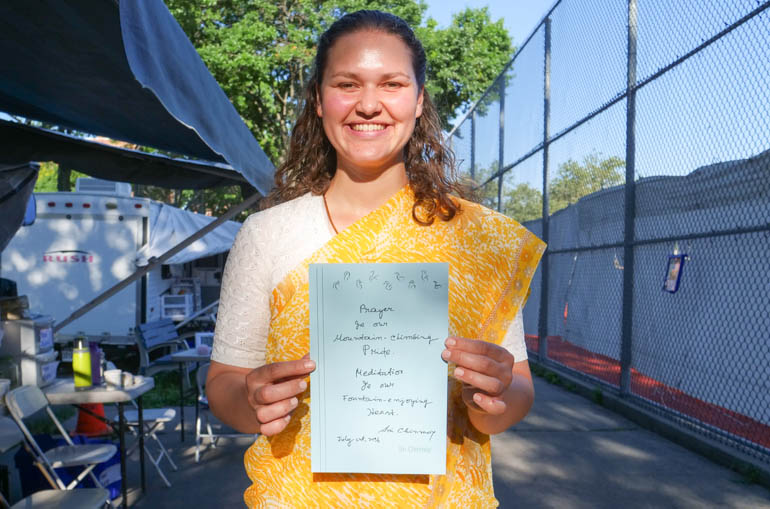 RUSH
Prayer
Is our
Mountain-climbing
Pride.
Meditation
Is our
Fountain-enjoying
Heart.
Sri Chinmoy
July
Sri Chinmoy